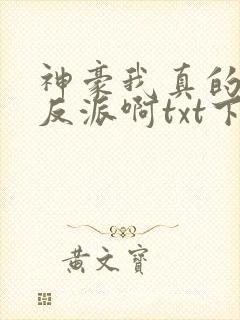 神豪我真的
反派啊txt下
黄文宝